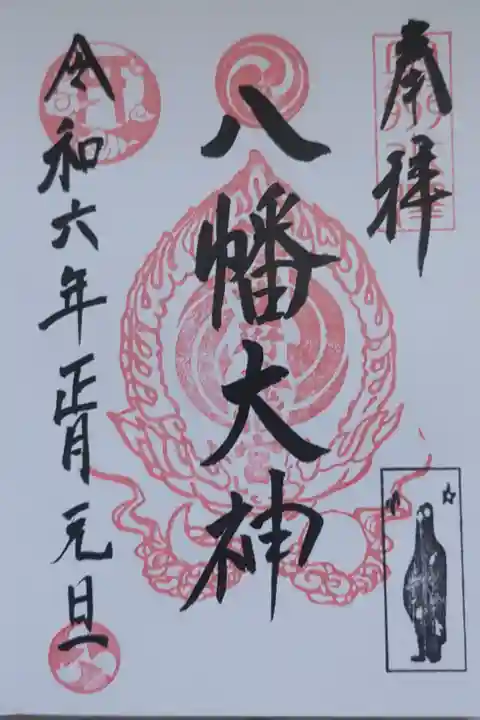 奉拝
八幡大神
令和六年正月元旦